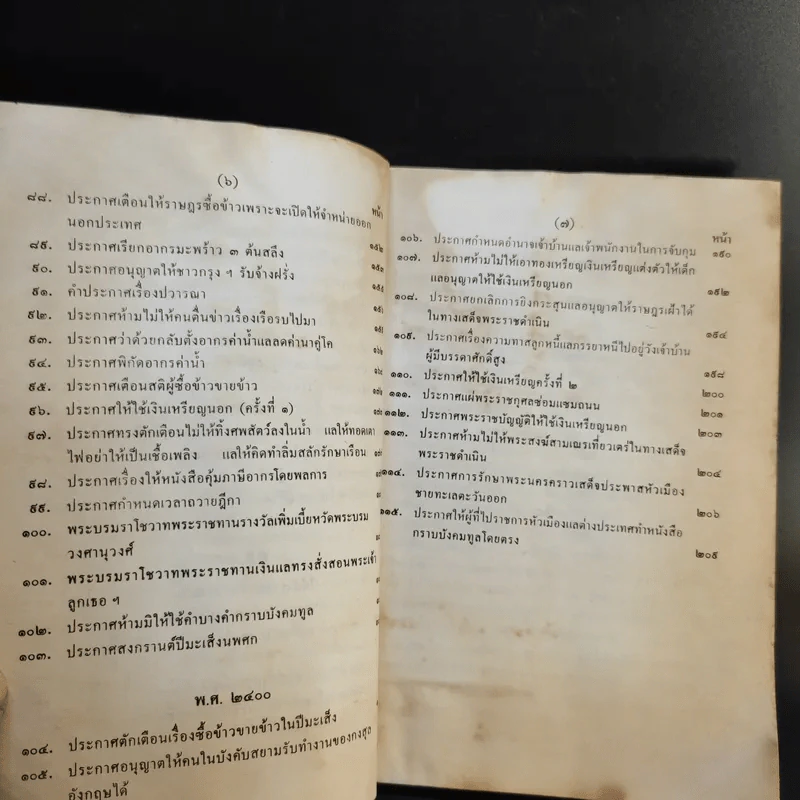 (๖)
หน้า
๘๘. ประกาศเตือนให้ราษฎรซื้อข้าวเพราะจะเปิดให้จำหน่ายออก
นอกประเทศ ๑๕๒
๘๙. ประกาศเรียกอากรมะพร้าว ๓ ต้นสลึง ๑๕๓
๙๐. ประกาศอนุญาตให้ชาวกรุง ฯ รับจ้างฝรั่ง
๙๑. คำประกาศเรื่องปวารณา
๙๒. ประกาศห้ามไม่ให้คนตื่นข่าวเรื่องเรือรบไปมา
๙๓. ประกาศว่าด้วยกลับตั้งอากรค่าน้ำแลลดค่านาคู่โค
๙๔. ประกาศพิกัดอากรค่าน้ำ
๙๕. ประกาศเตือนสติผู้ซื้อข้าวขายข้าว
๙๖. ประกาศให้ใช้เงินเหรียญนอก (ครั้งที่ ๑)
๙๗. ประกาศทรงตักเตือนไม่ให้ทิ้งศพสัตว์ลงในน้ำ แลให้ทอดเตา
ไฟอย่าให้เป็นเชื้อเพลิง แลให้คิดทำลิ่มสลักรักษาเรือน
๙๘. ประกาศเรื่องให้หนังสือคุ้มภาษีอากรโดยพลการ
๙๙. ประกาศกำหนดเวลาถวายฎีกา
๑๐๐. พระบรมราโชวาทพระราชทานรางวัลเพิ่มเบี้ยหวัดพระบรม
วงศานุวงศ์
๑๐๑. พระบรมราโชวาทพระราชทานเงินแลทรงสั่งสอนพระเจ้า
ลูกเธอ ฯ
๑๐๒. ประกาศห้ามมิให้ใช้คำบางคำกราบบังคมทูล
๑๐๓. ประกาศสงกรานต์ปีมะเส็งนพศก
พ.ศ. ๒๔๐๐
๑๐๔. ประกาศตักเตือนเรื่องซื้อข้าวขายข้าวในปีมะเส็ง
๑๐๕. ประกาศอนุญาตให้คนในบังคับสยามรับทำงานของกงสุล
อังกฤษได้
(๗)
หน้า
๑๐๖. ประกาศกำหนดอำนาจเจ้าบ้านแลเจ้าพนักงานในการจับกุม ๑๙๐
๑๐๗. ประกาศห้ามไม่ให้เอาทองเหรียญเงินเหรียญแต่งตัวให้เด็ก
แลอนุญาตให้ใช้เงินเหรียญนอก ๑๙๒
๑๐๘. ประกาศยกเลิกการยิงกระสุนแลอนุญาตให้ราษฎรเฝ้าได้
ในทางเสด็จพระราชดำเนิน ๑๙๔
๑๐๙. ประกาศเรื่องความทาสลูกหนี้แลภรรยาหนีไปอยู่วังเจ้าบ้าน
ผู้มีบรรดาศักดิ์สูง ๑๙๘
๑๑๐. ประกาศให้ใช้เงินเหรียญครั้งที่ ๒ ๒๐๐
๑๑๑. ประกาศแผ่พระราชกุศลซ่อมแซมถนน ๒๐๑
๑๑๒. ประกาศพระราชบัญญัติให้ใช้เงินเหรียญนอก ๒๐๓
๑๑๓. ประกาศห้ามไม่ให้พระสงฆ์สามเณรเที่ยวเตร่ในทางเสด็จ
พระราชดำเนิน ๒๐๔
๑๑๔. ประกาศการรักษาพระนครคราวเสด็จประพาสหัวเมือง
ชายทะเลตะวันออก ๒๐๖
๑๑๕. ประกาศให้ผู้ที่ไปราชการหัวเมืองแลต่างประเทศทำหนังสือ
กราบบังคมทูลโดยตรง ๒๐๙